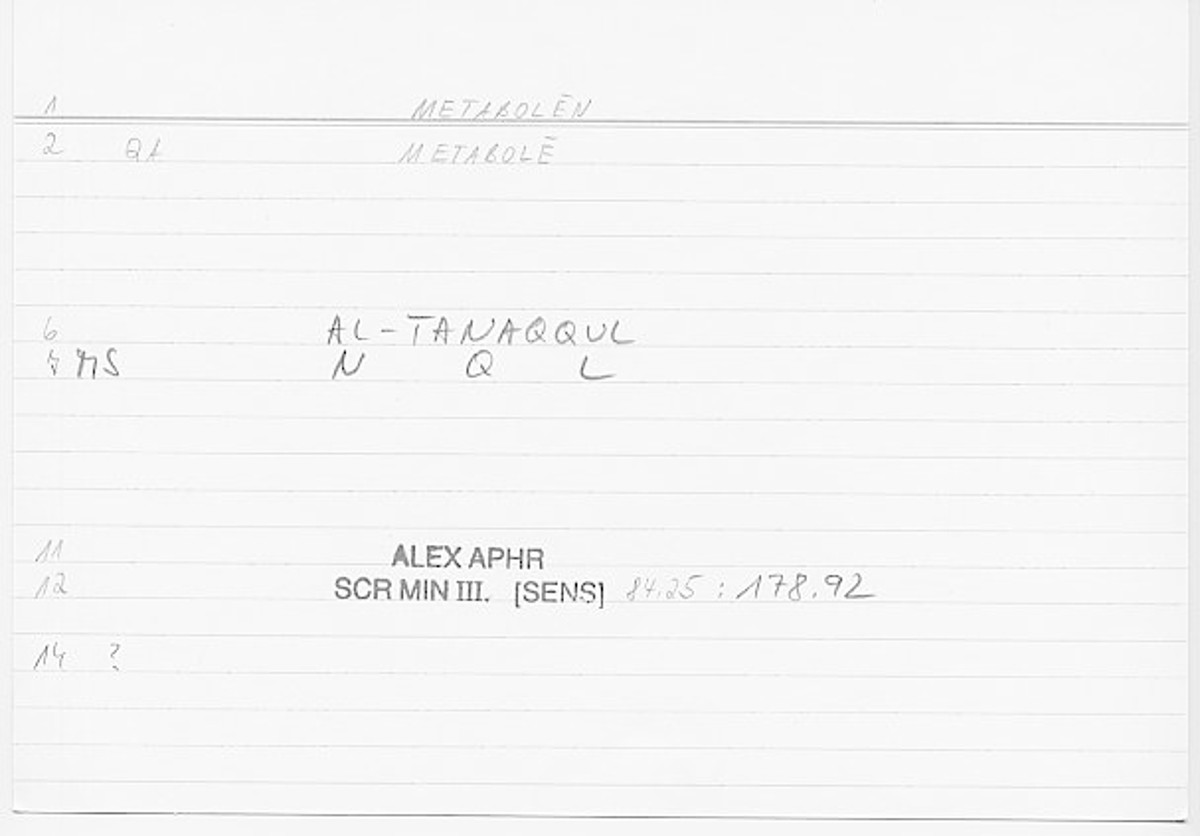 1 METABOLĒN
2 QA METABOLĒ
6 AL-TANAQQUL
7 MS N Q L
11 ALEX APHR
12 SCR MIN III. [SENS] 84.25 : 178.92
14 ?